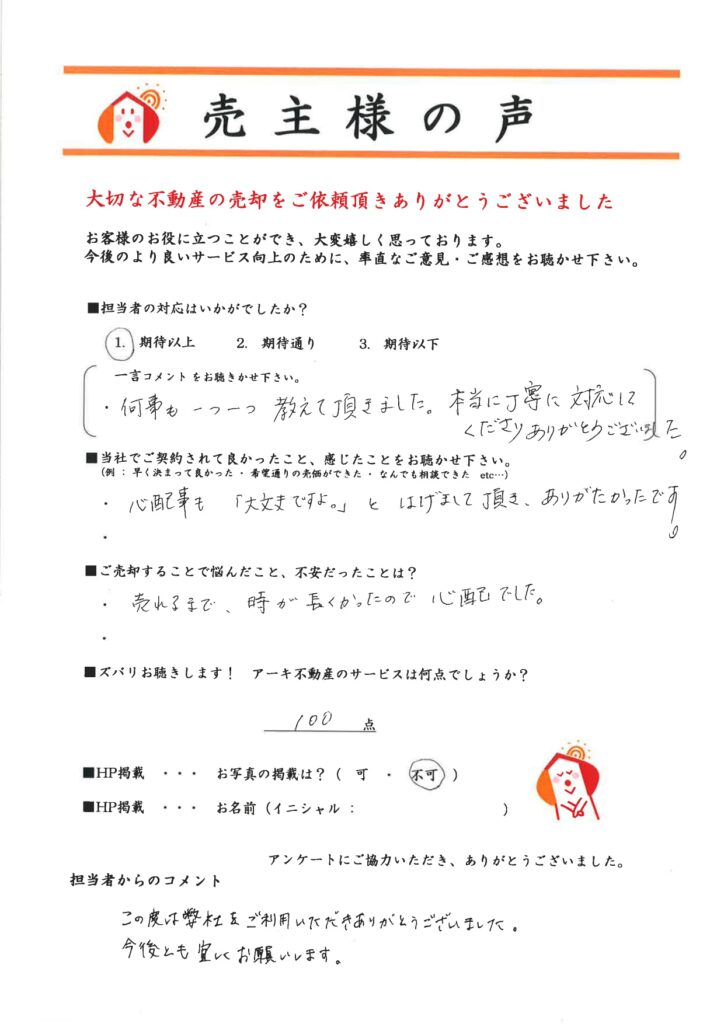 売主様の声
大切な不動産の売却をご依頼頂きありがとうございました
お客様のお役に立つことができ、大変嬉しく思っております。
今後のより良いサービス向上のために、率直なご意見・ご感想をお聴かせ下さい。
■担当者の対応はいかがでしたか？
1. 期待以上　2. 期待通り　3. 期待以下
一言コメントをお聴きかせ下さい。
・何事も一つ一つ 教えて頂きました。本当に丁寧に対応して
くださりありがとうございました。
■当社でご契約されて良かったこと、感じたことをお聴かせ下さい。
（例 ： 早く決まって良かった ・ 希望通りの売価ができた ・ なんでも相談できた　etc…）
・ 心配事も 「大丈夫ですよ。」と はげまして頂き、ありがたかったです。
・
■ご売却することで悩んだこと、不安だったことは？
・ 売れるまで、時が長くかったので心配でした。
・
■ズバリお聴きします！　アーキ不動産のサービスは何点でしょうか？
100 点
■HP掲載　・・・　お写真の掲載は？（ 可 ・ 不可 ）
■HP掲載　・・・　お名前（イニシャル：　　　　）
アンケートにご協力いただき、ありがとうございました。
担当者からのコメント
この度は弊社をご利用いただきありがとうございました。
今後とも宜しくお願いします。